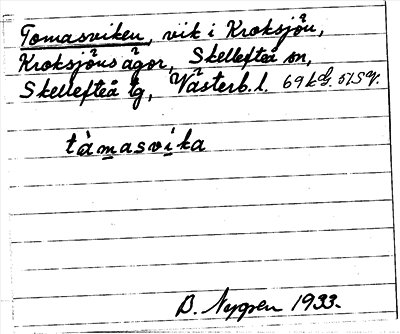 Tomasviken, vik i Kroksjön,
Kroksjöns ägor, Skellefteå sn,
Skellefteå tg, Västerb. l.
tàmasvika
B. Nygren 1933.